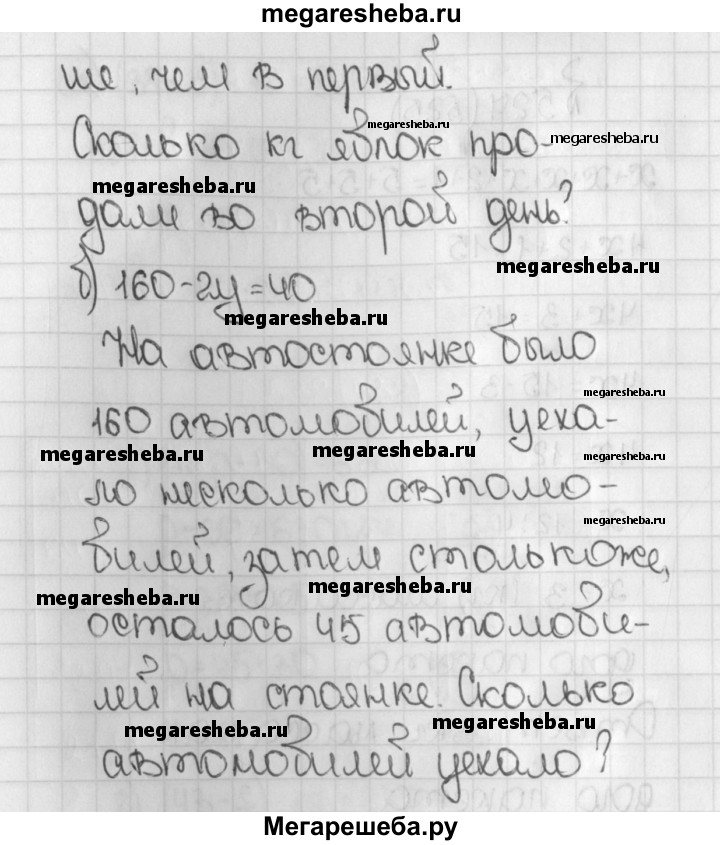 megaresheba.ru
ше, чем в первый.
megaresheba.ru
Сколько кг яблок про-
megaresheba.ru
megaresheba.ru
дали во второй день?
megaresheba.ru
б) 160-2y=40
megaresheba.ru
На автостоянке было
megaresheba.ru
160 автомобилей, уеха-
megaresheba.ru megaresheba.ru megaresheba.ru
ло несколько автомо-
megaresheba.ru
билей, затем столькоже,
megaresheba.ru megaresheba.ru
осталось 45 автомоби-
лей на стоянке. Сколько
megaresheba.ru megaresheba.ru
автомобилей уехало?
Мегарешеба.ру